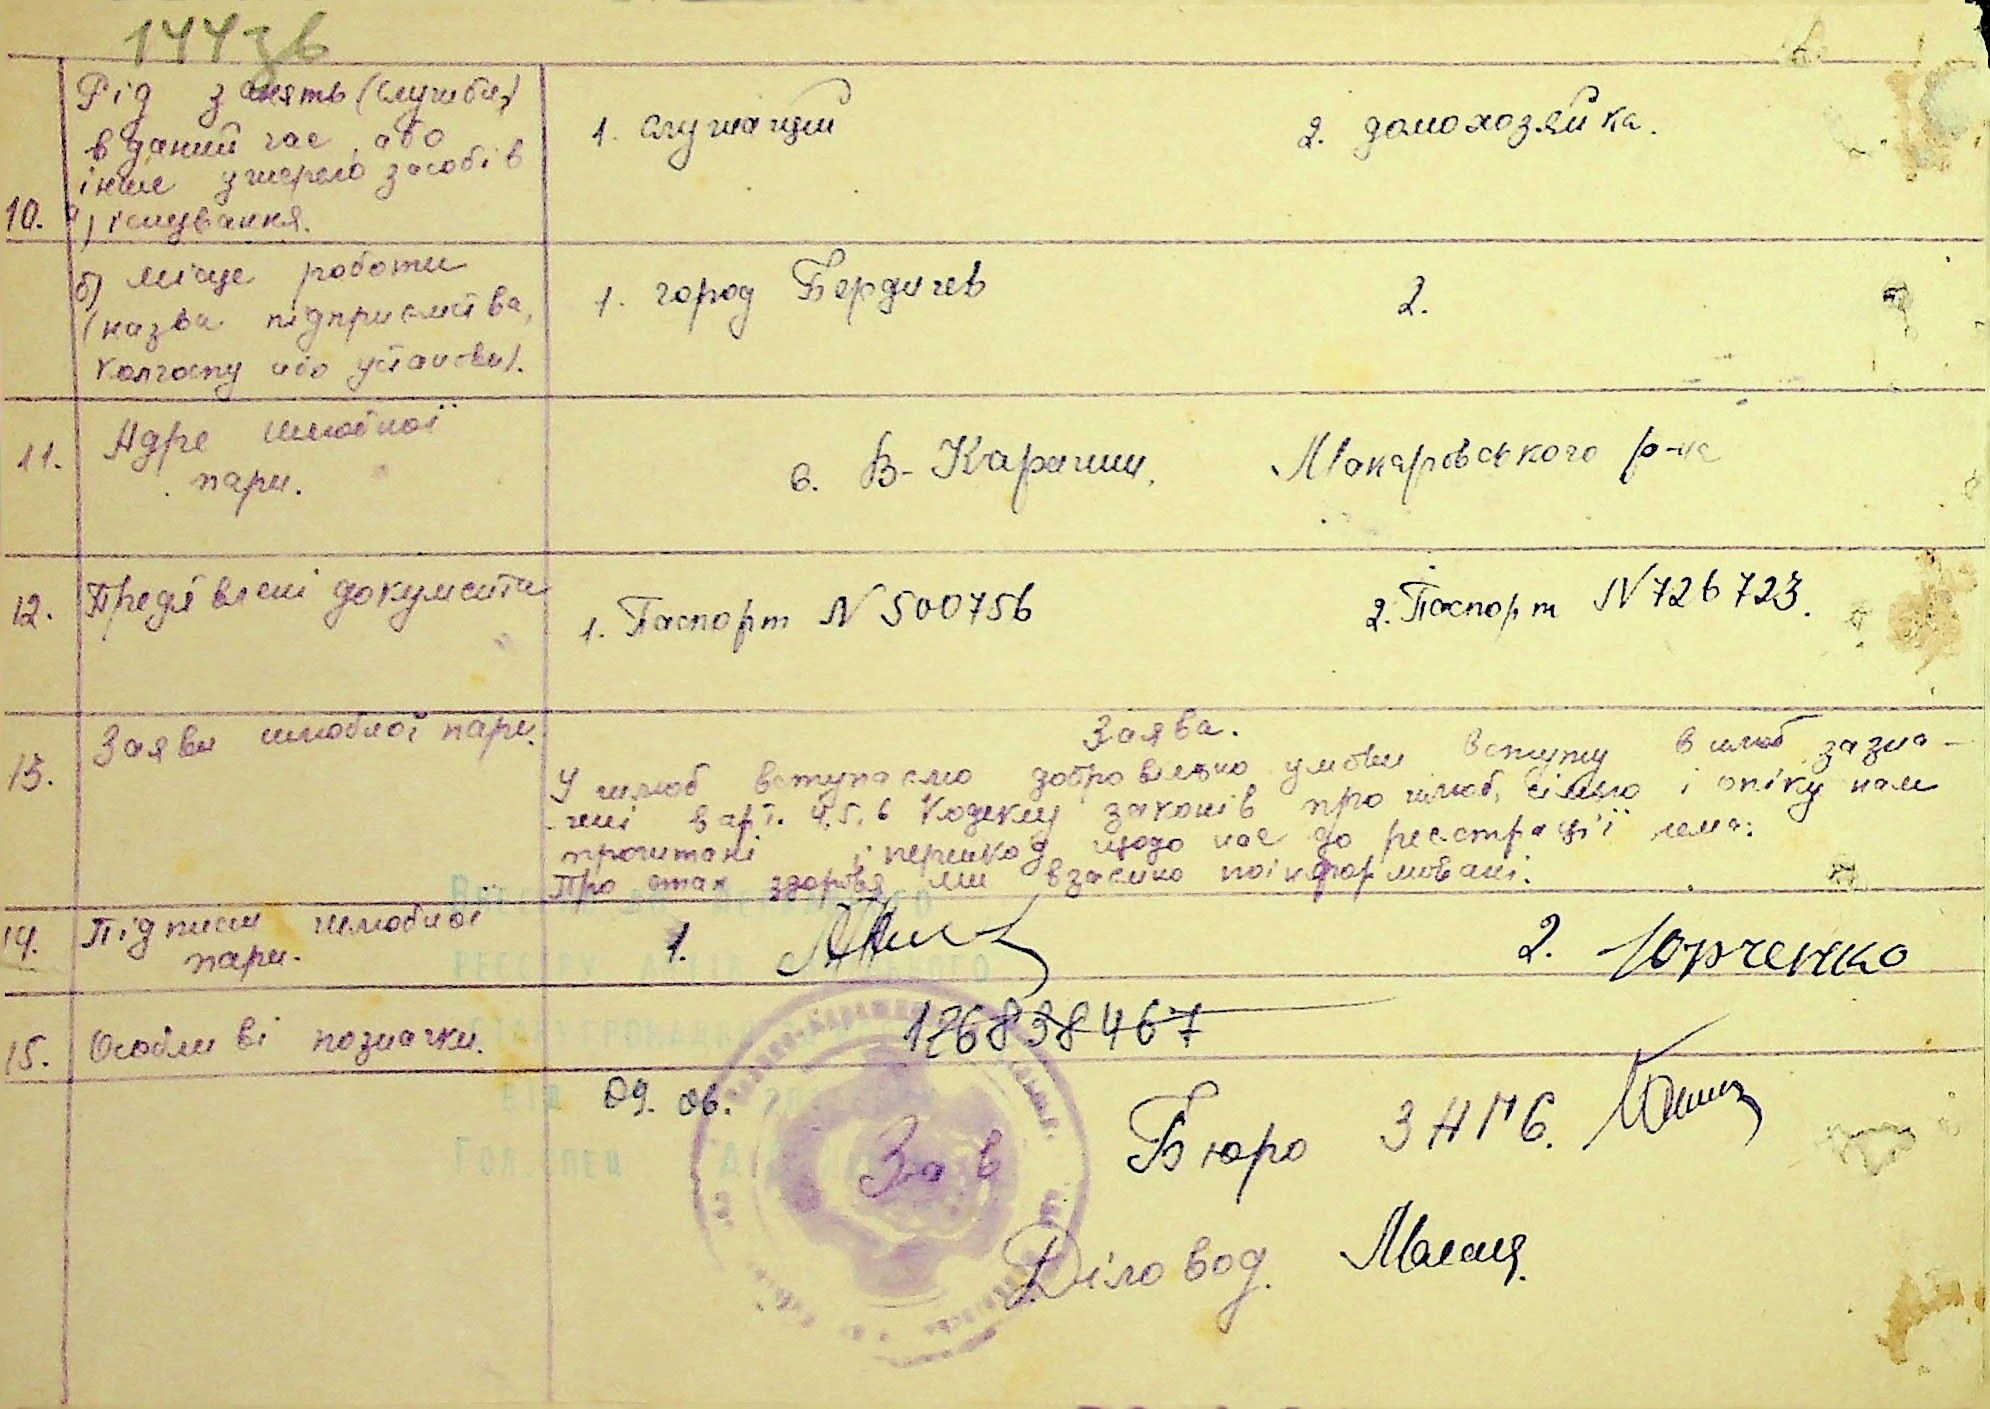 144зв
Рід занять (служби)
в даний час або
інше джерело засобів
10. а) існування.
1. служащий 2. домохозяйка.
б) місце роботи
(назва підприємства,
колгоспу або установи).
1. город Бердичев 2.
11. Адре шлюбної
пари.
с. В-Карашин, Макаровського р-на
12. Предявлені документи
1. Паспорт N 500756 2. Паспорт N 726723.
13. Заяви шлюбної пари.
Заява.
У шлюб вступаємо добровільно умови вступу в шлюб, зазна-
чені в арт. 4, 5, 6 Кодексу законів про шлюб, сімью і опіку нам
прочитані і перешкод щодо нас до реєстрації нема.
Про стан здоровя ми взаємно поінформовані.
14. Підписи шлюбної
пари.
1. 2. Юрченко
15. Особливі позначки.
126838467
09. 06.
Зав Бюро ЗАГС.
Діловод.